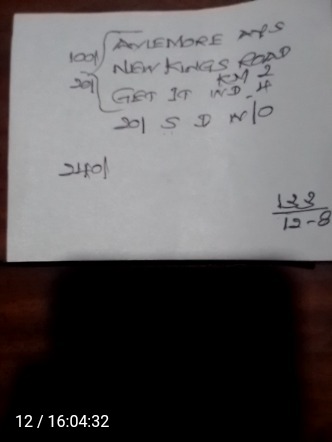 100/ AVIEMORE APS
NEW KINGS ROAD
20/ KM 2
GET IT WD-4
20/ S D W/O
240/
123
12-8
12 / 16:04:32